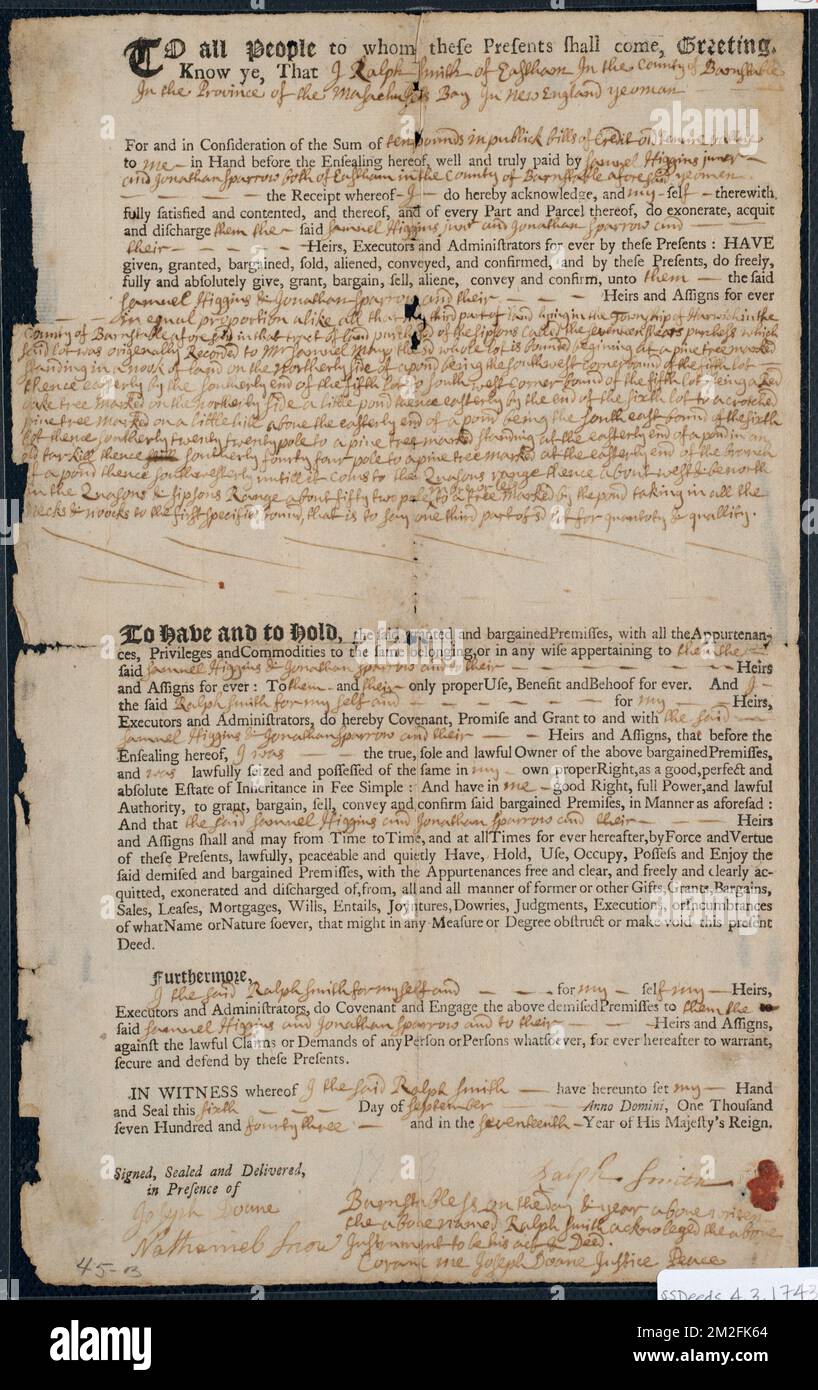 TO all People to whom these Presents shall come, Greeting.
Know ye, That I Ralph Smith of Eastham In the County of Barnstable
In the Province of the Masachusets Bay In New England yeoman
For and in Consideration of the Sum of ten pounds in publick bills of Credit old tenure
to me in Hand before the Ensealing hereof, well and truly paid by Samuel Higgins junr
and Jonathan Sparrow both of Eastham in the County of Barnstable aforesaid yeomen
the Receipt whereof I do hereby acknowledge, and my self therewith
fully satisfied and contented, and thereof, and of every Part and Parcel thereof, do exonerate, acquit
and discharge them the said Samuel Higgins junr and Jonathan Sparrow and
their Heirs, Executors and Administrators for ever by these Presents : HAVE
given, granted, bargained, sold, aliened, conveyed, and confirmed, and by these Presents, do freely,
fully and absolutely give, grant, bargain, sell, aliene, convey and confirm, unto them the said
Samuel Higgins & Jonathan Sparrow and their Heirs and Assigns for ever
in equal proportion alike all that third part of land lying in the Township of Harwich in the
County of Barnstable aforesd in that tract of land purchased of the sipsons called the seventeen shears purchess which
said lot was originally Recorded to Mr Samuel Mayo the sd whole lot is bounded begining at a pine tree marked
standing in a nook of land on the Northerly side of a pond being the southwest corner bound of the fifth lot
thence easterly by the southerly end of the fifth lot to south west corner bound of the fifth lot being a Red
oake tree marked on the northerly side a little pond thence easterly by the end of the sixth lot to a crotched
pine tree marked on a little hill above the easterly end of a pond being the south east bound of the sixth
lot thence southerly twenty twenty pole to a pine tree marked standing at the easterly end of a pond in an
old tar kill thence southerly fourty four pole to a pine tree marked at the easterly end of the branch
of a pond thence southwesterly untill it coms to the Quasons range thence about west & be north
in the Quasons & sipsons Range about fifty two pole to a tree marked by the pond taking in all the
necks & noocks to the first specified bound, that is to say one third part of sd lot for quantity & quallity.
To Have and to Hold, the said granted and bargained Premisses, with all the Appurtenan-
ces, Privileges and Commodities to the same belonging, or in any wise appertaining to them the
said Samuel Higgins & Jonathan Sparrow and their Heirs
and Assigns for ever : To them and their only proper Use, Benefit and Behoof for ever. And I
the said Ralph Smith for my self and for my Heirs,
Executors and Administrators, do hereby Covenant, Promise and Grant to and with the said
Samuel Higgins & Jonathan Sparrow and their Heirs and Assigns, that before the
Ensealing hereof, I was the true, sole and lawful Owner of the above bargained Premisses,
and was lawfully seized and possessed of the same in my own proper Right, as a good, perfect and
absolute Estate of Inheritance in Fee Simple : And have in me good Right, full Power, and lawful
Authority, to grant, bargain, sell, convey and confirm said bargained Premises, in Manner as aforesad :
And that the said Samuel Higgins and Jonathan Sparrow and their Heirs
and Assigns shall and may from Time to Time, and at all Times for ever hereafter, by Force and Vertue
of these Presents, lawfully, peaceable and quietly Have, Hold, Use, Occupy, Possess and Enjoy the
said demised and bargained Premisses, with the Appurtenances free and clear, and freely and clearly ac-
quitted, exonerated and discharged of, from, all and all manner of former or other Gifts, Grants, Bargains,
Sales, Leases, Mortgages, Wills, Entails, Joyntures, Dowries, Judgments, Executions, or Incumbrances
of what Name or Nature soever, that might in any Measure or Degree obstruct or make void this present
Deed.
Furthermore,
I the said Ralph Smith for my self and for my self my Heirs,
Executors and Administrators, do Covenant and Engage the above demised Premisses to them the
said Samuel Higgins and Jonathan Sparrow and to their Heirs and Assigns,
against the lawful Claims or Demands of any Person or Persons whatsoever, for ever hereafter to warrant,
secure and defend by these Presents.
IN WITNESS whereof I the said Ralph Smith have hereunto set my Hand
and Seal this sixth Day of September Anno Domini, One Thousand
seven Hundred and fourty three and in the seventeenth Year of His Majesty's Reign.
Signed, Sealed and Delivered,
in Presence of
Ralph Smith
Joseph Doane
Nathaniel Snow
Barnstable ss on the day & year above writen
the above named Ralph Smith acknowleged the above
Instrument to be his act & Deed.
Coram me Joseph Doane Justice Peace
45-03
SSDeeds 4.3.1743
alamy
Image ID: 2M2FK64
www.alamy.com